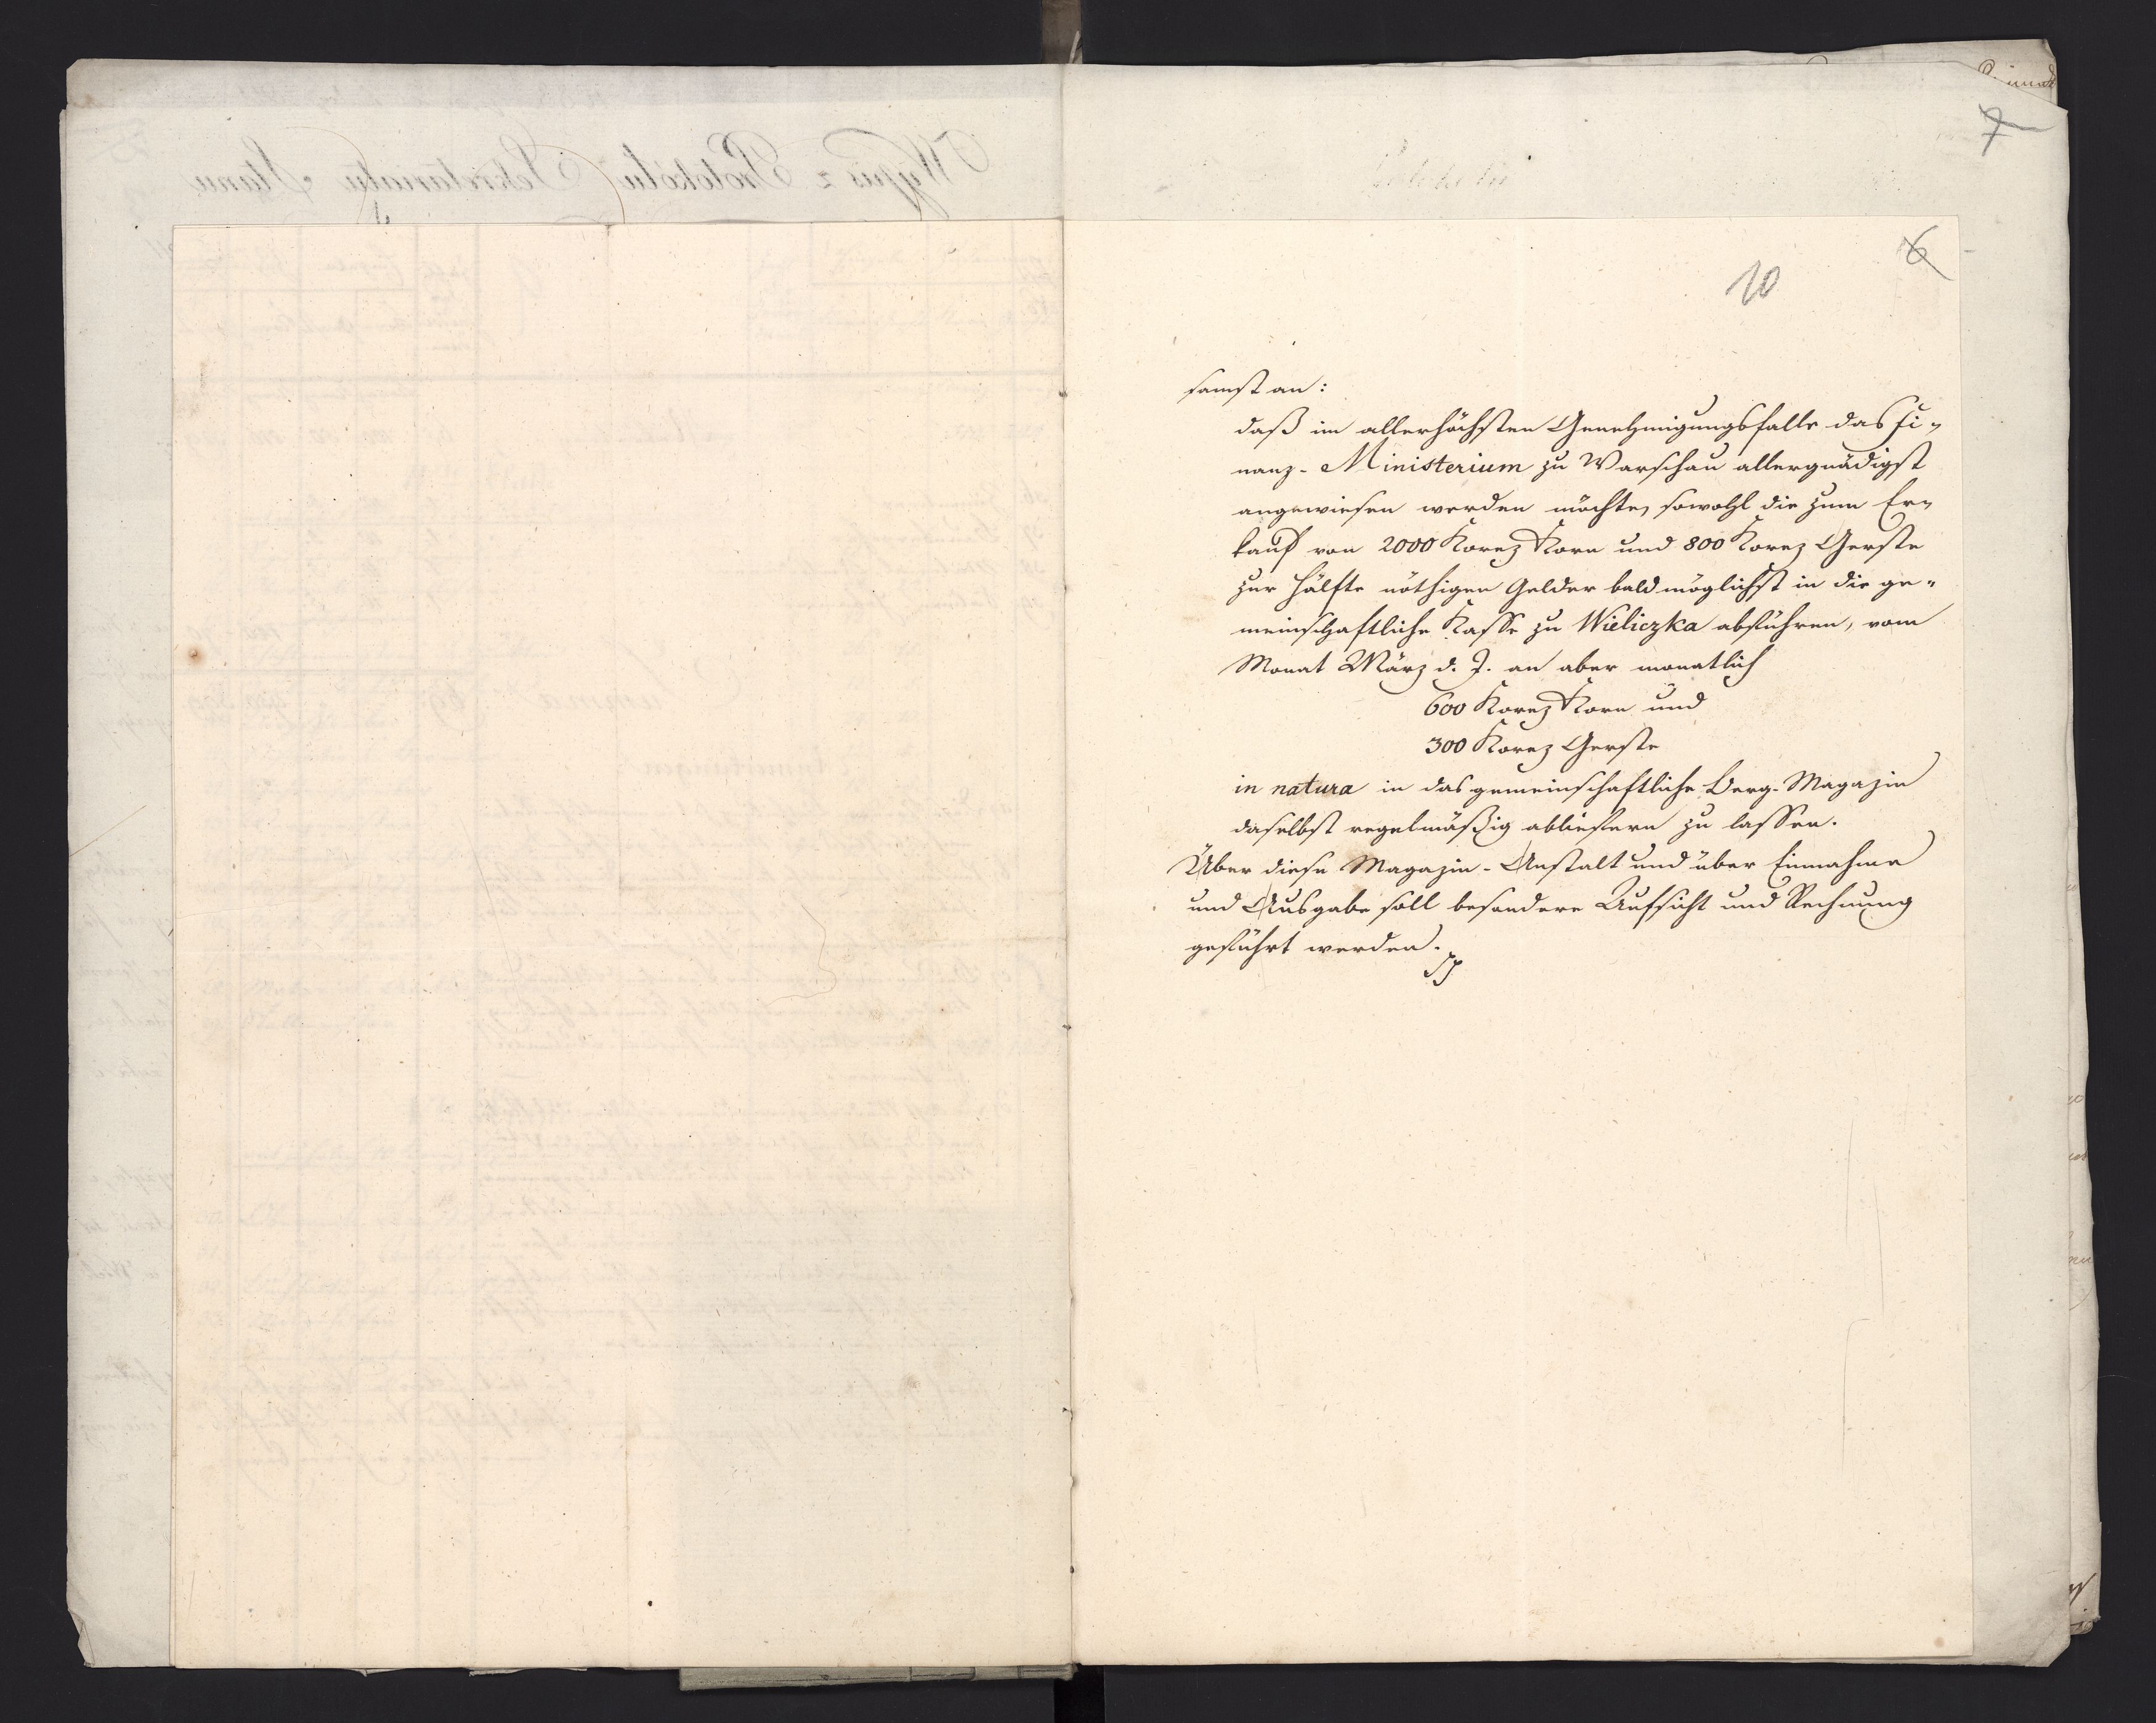 7
6
10
samst an:
daß im allerhöchsten Genehmigungsfalle das Fi-
nanz-Ministerium zu Warschau allergnädigst
angewiesen werden möchte, sowohl die zum Er-
kauf von 2000 Korez Korn und 800 Korez Gerste
zur Hälfte nöthigen Gelder baldmöglichst in die ge-
meinschaftliche Kasse zu Wieliczka abführen, vom
Monat März d. J. an aber monatlich
600 Korez Korn und
300 Korez Gerste
in natura in das gemeinschaftliche Berg-Magazin
daselbst regelmäßig abliefern zu lassen.
Über diese Magazin-Anstalt und über Einnahme
und Ausgabe soll besondere Aufsicht und Rechnung
geführt werden.